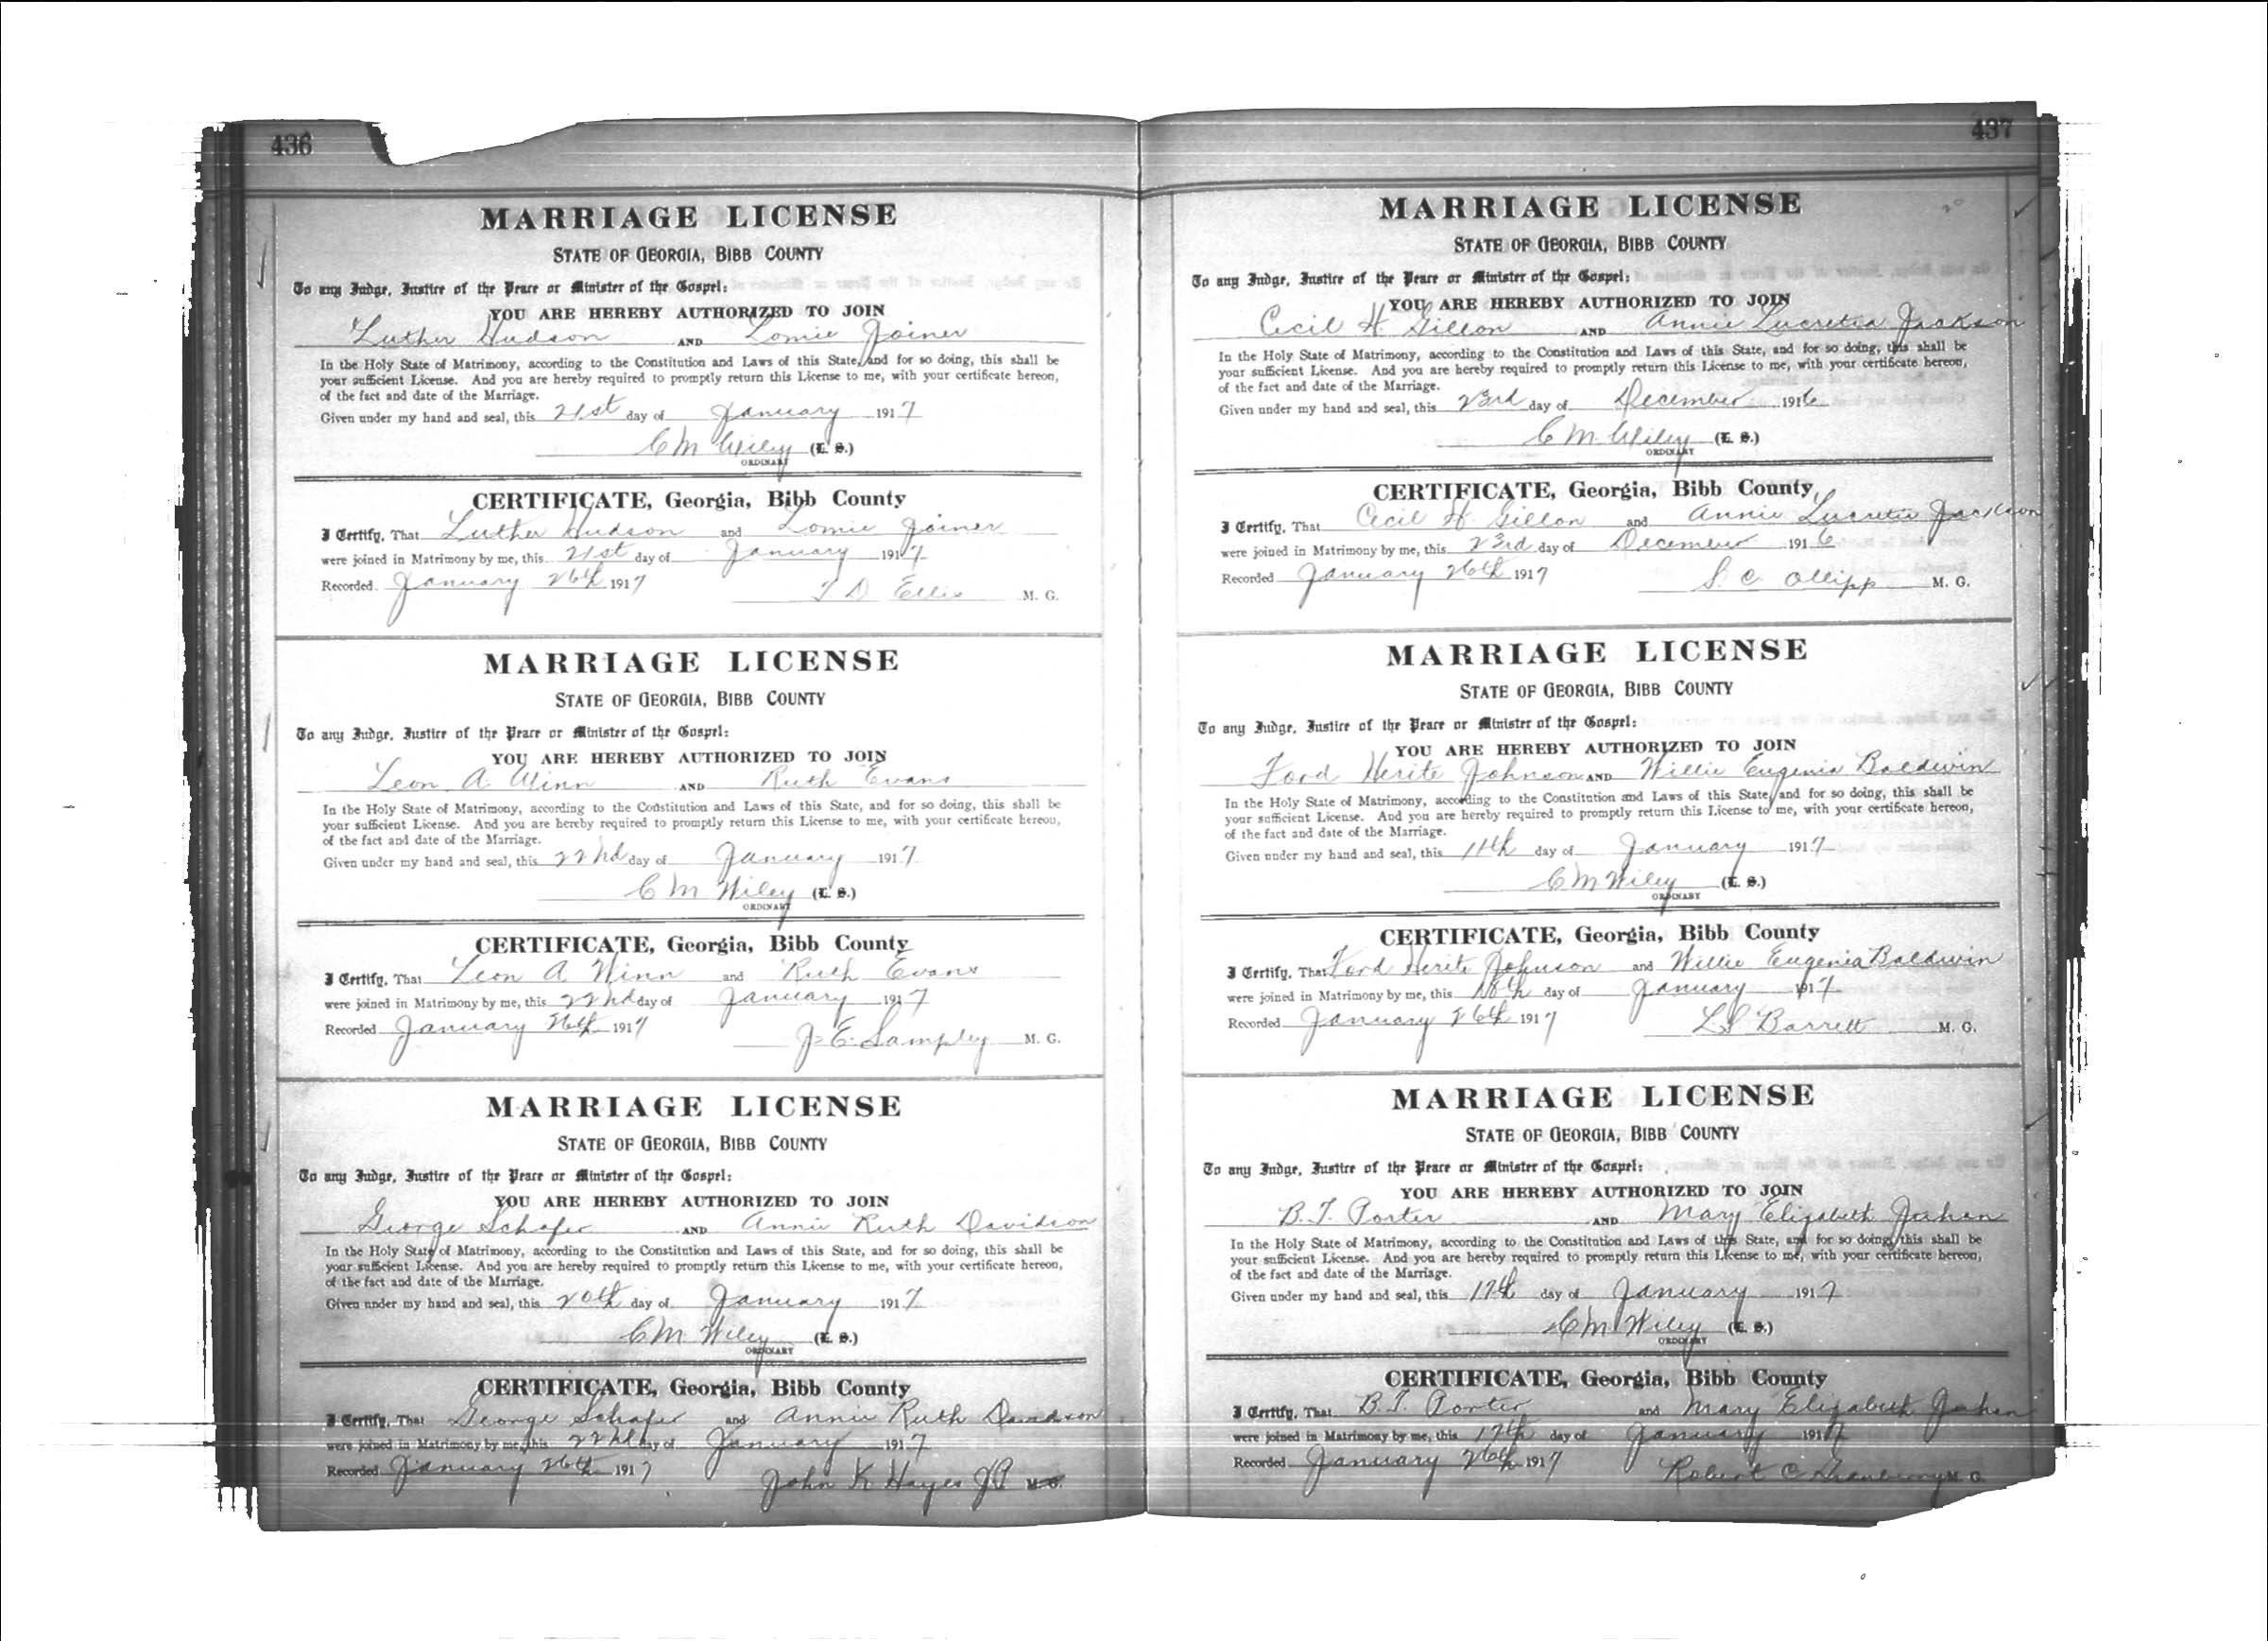 436
MARRIAGE LICENSE
STATE OF GEORGIA, BIBB COUNTY
To any Judge, Justice of the Peace or Minister of the Gospel:
YOU ARE HEREBY AUTHORIZED TO JOIN
Luther Hudson AND Lomie Joiner
In the Holy State of Matrimony, according to the Constitution and Laws of this State, and for so doing, this shall be
your sufficient License. And you are hereby required to promptly return this License to me, with your certificate hereon,
of the fact and date of the Marriage.
Given under my hand and seal, this 21st day of January 1917
C M Wiley (L. S.)
ORDINARY
CERTIFICATE, Georgia, Bibb County
I Certify, That Luther Hudson and Lomie Joiner
were joined in Matrimony by me, this 21st day of January 1917
Recorded January 26th 1917
T D Ellis M. G.
MARRIAGE LICENSE
STATE OF GEORGIA, BIBB COUNTY
To any Judge, Justice of the Peace or Minister of the Gospel:
YOU ARE HEREBY AUTHORIZED TO JOIN
Leon A. Winn AND Ruth Evans
In the Holy State of Matrimony, according to the Constitution and Laws of this State, and for so doing, this shall be
your sufficient License. And you are hereby required to promptly return this License to me, with your certificate hereon,
of the fact and date of the Marriage.
Given under my hand and seal, this 22nd day of January 1917
C M Wiley (L. S.)
ORDINARY
CERTIFICATE, Georgia, Bibb County
I Certify, That Leon A Winn and Ruth Evans
were joined in Matrimony by me, this 22nd day of January 1917
Recorded January 26th 1917
J. E. Sampley M. G.
MARRIAGE LICENSE
STATE OF GEORGIA, BIBB COUNTY
To any Judge, Justice of the Peace or Minister of the Gospel:
YOU ARE HEREBY AUTHORIZED TO JOIN
George Schafer AND Annie Ruth Davidson
In the Holy State of Matrimony, according to the Constitution and Laws of this State, and for so doing, this shall be
your sufficient License. And you are hereby required to promptly return this License to me, with your certificate hereon,
of the fact and date of the Marriage.
Given under my hand and seal, this 20th day of January 1917
C M Wiley (L. S.)
ORDINARY
CERTIFICATE, Georgia, Bibb County
I Certify, That George Schafer and Annie Ruth Davidson
were joined in Matrimony by me, this 22nd day of January 1917
Recorded January 26th 1917
John K Hayes JP M. G.
437
MARRIAGE LICENSE
STATE OF GEORGIA, BIBB COUNTY
To any Judge, Justice of the Peace or Minister of the Gospel:
YOU ARE HEREBY AUTHORIZED TO JOIN
Cecil H. Gillon AND Annie Lucretia Jackson
In the Holy State of Matrimony, according to the Constitution and Laws of this State, and for so doing, this shall be
your sufficient License. And you are hereby required to promptly return this License to me, with your certificate hereon,
of the fact and date of the Marriage.
Given under my hand and seal, this 23rd day of December 1916
C M. Wiley (L. S.)
ORDINARY
CERTIFICATE, Georgia, Bibb County
I Certify, That Cecil H. Gillon and Annie Lucretia Jackson
were joined in Matrimony by me, this 23rd day of December 1916
Recorded January 26th 1917
S. C. M. G.
MARRIAGE LICENSE
STATE OF GEORGIA, BIBB COUNTY
To any Judge, Justice of the Peace or Minister of the Gospel:
YOU ARE HEREBY AUTHORIZED TO JOIN
Ford Herite Johnson AND Willie Eugenia Baldwin
In the Holy State of Matrimony, according to the Constitution and Laws of this State, and for so doing, this shall be
your sufficient License. And you are hereby required to promptly return this License to me, with your certificate hereon,
of the fact and date of the Marriage.
Given under my hand and seal, this 11th day of January 1917
C M Wiley (L. S.)
ORDINARY
CERTIFICATE, Georgia, Bibb County
I Certify, That Ford Herite Johnson and Willie Eugenia Baldwin
were joined in Matrimony by me, this 18th day of January 1917
Recorded January 26th 1917
L S Barrett M. G.
MARRIAGE LICENSE
STATE OF GEORGIA, BIBB COUNTY
To any Judge, Justice of the Peace or Minister of the Gospel:
YOU ARE HEREBY AUTHORIZED TO JOIN
B. T. Porter AND Mary Elizabeth
In the Holy State of Matrimony, according to the Constitution and Laws of this State, and for so doing, this shall be
your sufficient License. And you are hereby required to promptly return this License to me, with your certificate hereon,
of the fact and date of the Marriage.
Given under my hand and seal, this 17th day of January 1917
C M Wiley (L. S.)
ORDINARY
CERTIFICATE, Georgia, Bibb County
I Certify, That B. T. Porter and Mary Elizabeth
were joined in Matrimony by me, this 17th day of January 1917
Recorded January 26th 1917
Robert C Granberry M. G.